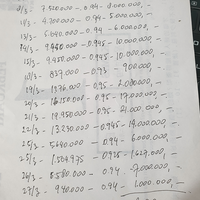 12/3 - 7.520.000 - 0.94 - 8.000.000,-
14/3 - 4.700.000 - 0.94 - 5.000.000,-
13/3 - 5.640.000 - 0.94 - 6.000.000,-
14/3 - 9.450.000 - 0.945 - 10.000.000,-
15/3 - 9.450.000 - 0.945 - 10.000.000,-
837.000 - 0.93 - 900.000,-
- 0.95 -
20/3 - 16.150.000 - 0.95 - 17.000.000,-
21/3 - 19.950.000 - 0.95 - 21.000.000,-
22/3 - 13.230.000 - 0.945 - 14.000.000,-
25/3 - 5.640.000 - 0.94 - 6.000.000,-
25/3 - 1.504.975 - 0.925 - 1.627.000,-
26/3 - 6.580.000 - 0.94 - 7.000.000,-
27/3 - 940.000 - 0.94 - 1.000.000,-